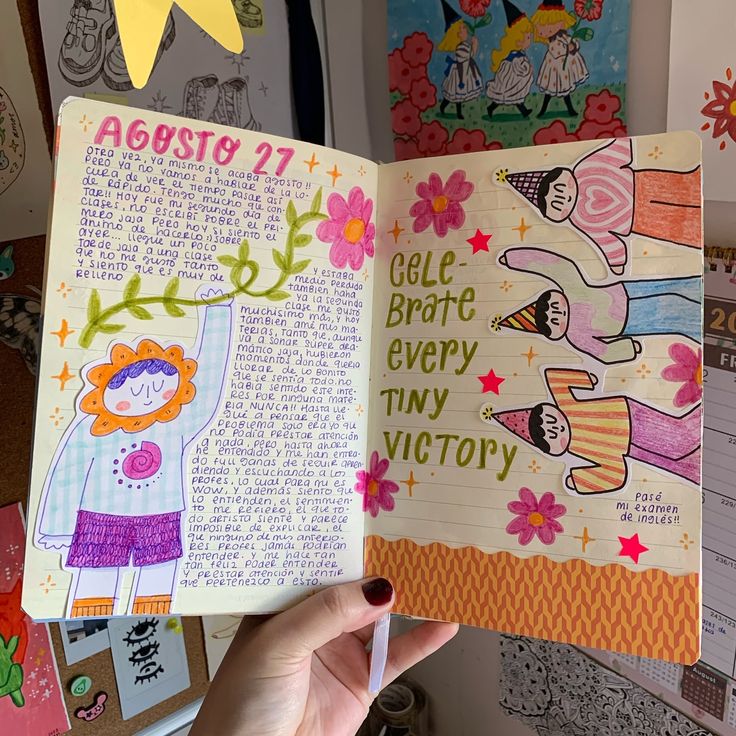 AGOSTO 27
OTRA VEZ, YA MISMO SE ACABA AGOSTO!!
PERO NO VAMOS A HABLAR DE LA LO-
CURA DE VER EL TIEMPO PASAR ASÍ
DE RÁPIDO. TENGO MUCHO QUE CON-
TAR!! HOY FUE MI SEGUNDO DÍA DE
CLASES, NO ESCRIBÍ SOBRE EL PRI-
MERO JAJA PERO HOY SI SIENTO EL
ÁNIMO DE HACERLO :) SOBRE
AYER... LLEGUÉ UN POCO
TARDE JAJA A UNA CLASE
QUE NO ME GUSTÓ TANTO
Y SIENTO QUE ES MUY DE
RELLENO
Y ESTABA
MEDIO PERDIDA
TAMBIEN HAHA
YA LA SEGUNDA
CLASE ME GUSTÓ
MUCHÍSIMO MÁS, Y HOY
TAMBIEN AMÉ MIS MA-
TERIAS, TANTO QUE, AUNQUE
VA A SONAR SÚPER DRA-
MÁTICO JAJA, HUBIERON
MOMENTOS DONDE QUERÍA
LLORAR DE LO BONITO
QUE SE SENTÍA TODO. NO
HABÍA SENTIDO ESTE INTE-
RÉS POR NINGUNA MATE-
RIA NUNCA!! HASTA LLE-
GUÉ A PENSAR QUE EL
PROBLEMA SOLO ERA YO QUE
NO PODÍA PRESTAR ATENCIÓN
A NADA, PERO HASTA AHORA
HE ENTENDIDO Y ME HAN ENTRA-
DO FULL GANAS DE SEGUIR APREN-
DIENDO Y ESCUCHANDO A LOS
PROFES, LO CUAL PARA MI ES
WOW, Y ADEMÁS SIENTO QUE
LO ENTIENDEN, EL SENTIMIEN-
TO ME REFIERO, EL QUE TO-
DO ARTISTA SIENTE Y PARECE
IMPOSIBLE DE EXPLICAR, EL
QUE NINGUNO DE MIS ANTERIO-
RES PROFES JAMÁS PODRÍAN
ENTENDER. Y ME HACE TAN
TAN FELIZ PODER ENTENDER
Y PRESTAR ATENCIÓN Y SENTIR
QUE PERTENEZCO A ESTO.
CELE-
BRATE
EVERY
TINY
VICTORY
PASÉ
MI EXAMEN
DE INGLÉS!!
FR
August